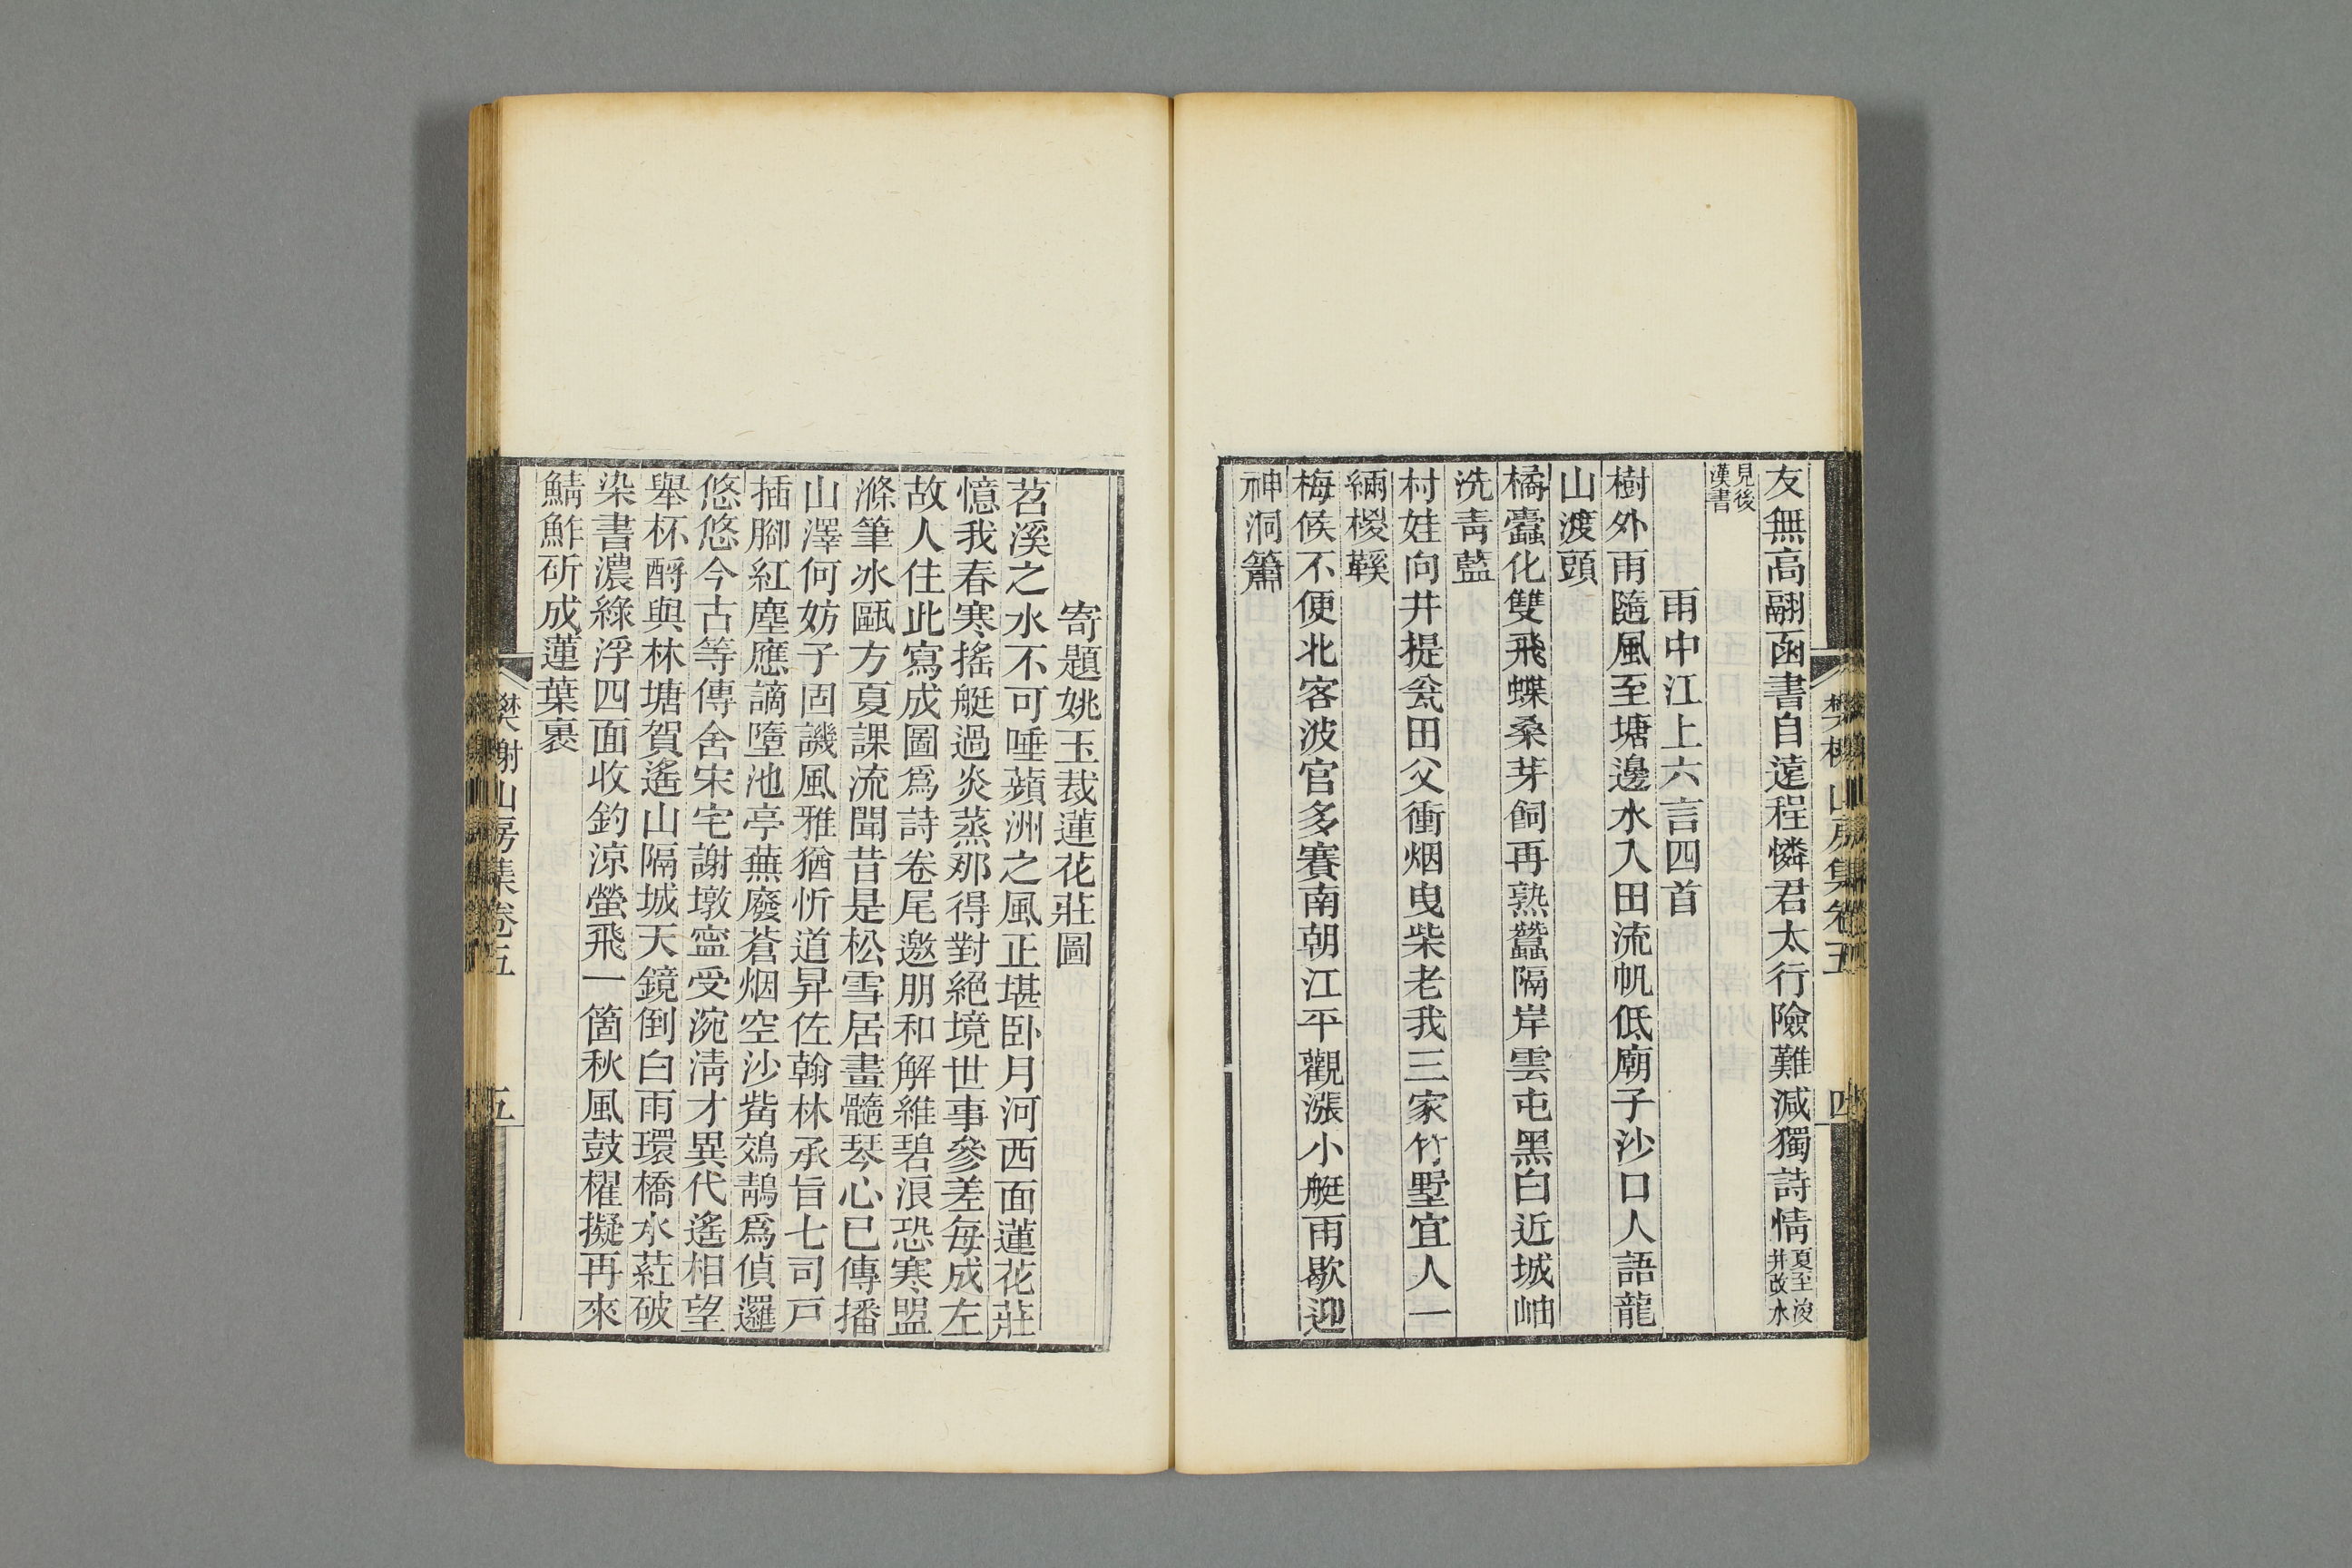 友無高翮函書自遠程憐君太行險難減獨詩情夏至浚井改水
見後漢書
雨中江上六言四首
樹外雨隨風至塘邊水入田流帆低廟子沙口人語龍
山渡頭
橘蠹化雙飛蝶桑芽飼再熟蠶隔岸雲屯黑白近城岫
洗青藍
村娃向井提瓮田父衝烟曳柴老我三家竹墅宜人一
緉椶鞵
梅候不便北客波官多賽南朝江平觀漲小艇雨歇迎
神洞簫
樊榭山房集卷五
四
寄題姚玉裁蓮花莊圖
苕溪之水不可唾蘋洲之風正堪卧月河西面蓮花莊
憶我春寒搖艇過炎蒸那得對絕境世事參差每成左
故人住此寫成圖爲詩卷尾邀朋和解維碧浪恐寒盟
滌筆冰甌方夏課流聞昔是松雪居畫髓琴心已傳播
山澤何妨子固譏風雅猶忻道昇佐翰林承旨七司戸
插腳紅塵應謫墮池亭蕪廢蒼烟空沙觜鵁鶄爲偵邏
悠悠今古等傳舍宋宅謝墩寍受涴淸才異代遙相望
舉杯酹與林塘賀遙山隔城天鏡倒白雨環橋水葒破
染書濃綠浮四面收釣涼螢飛一箇秋風鼓櫂擬再來
鯖鮓斫成蓮葉裹
樊榭山房集卷五
五